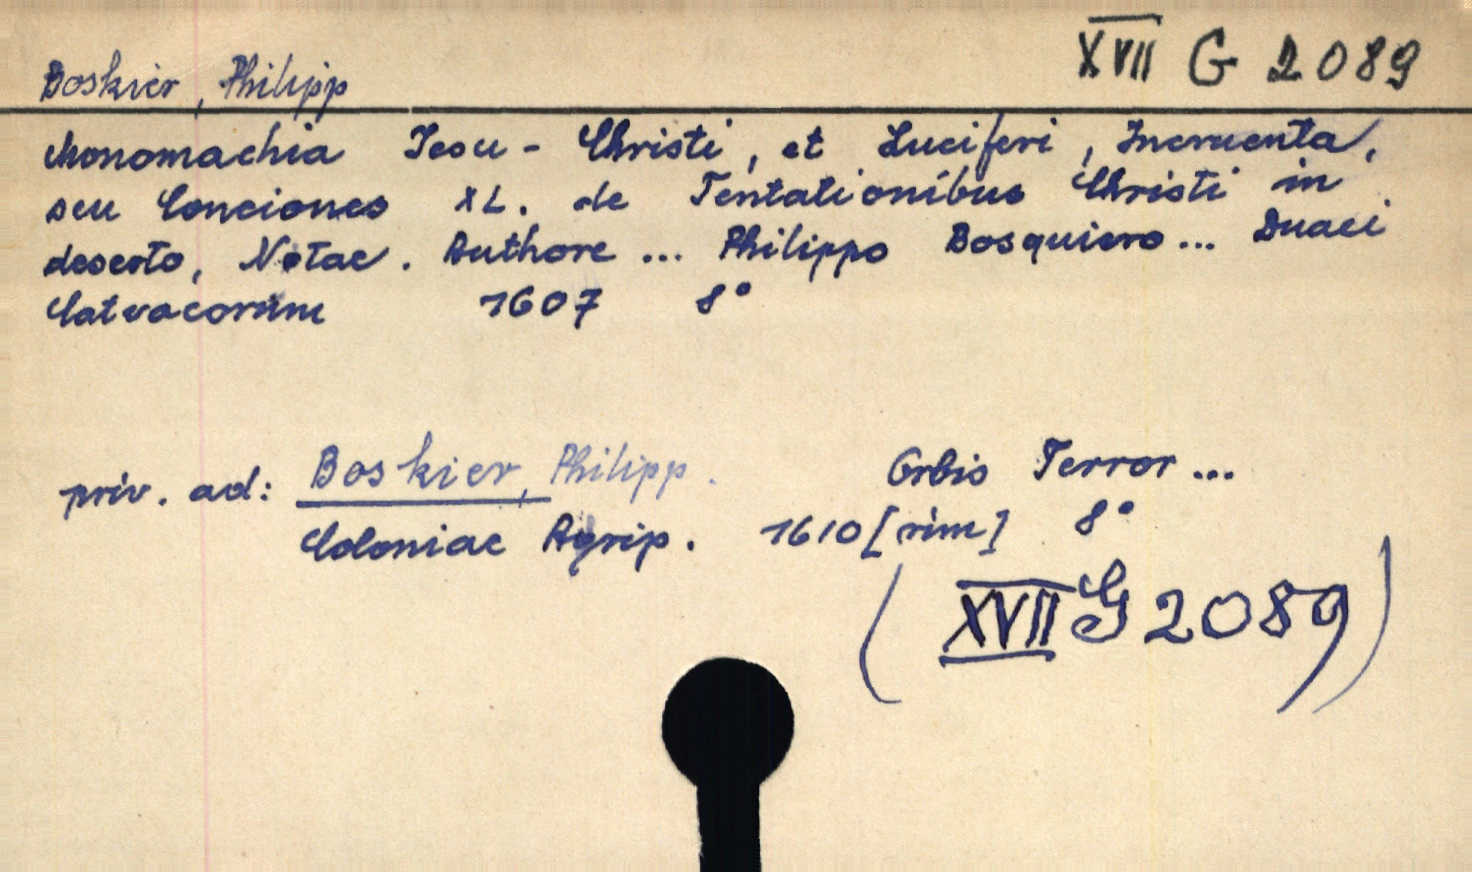 XVII G 2089
Boskier, Philipp
Monomachia Iesu - Christi, et Luciferi, Incruenta,
seu Conciones XL. de Tentationibus Christi in
deserto, Notae. Authore ... Philippo Bosquiero ... Duaci
Catvacorum 1607 8°
priv. ad: Boskier, Philipp. Orbis Terror ...
Coloniae Agrip. 1610 [rim] 8°
(XVII G 2089)